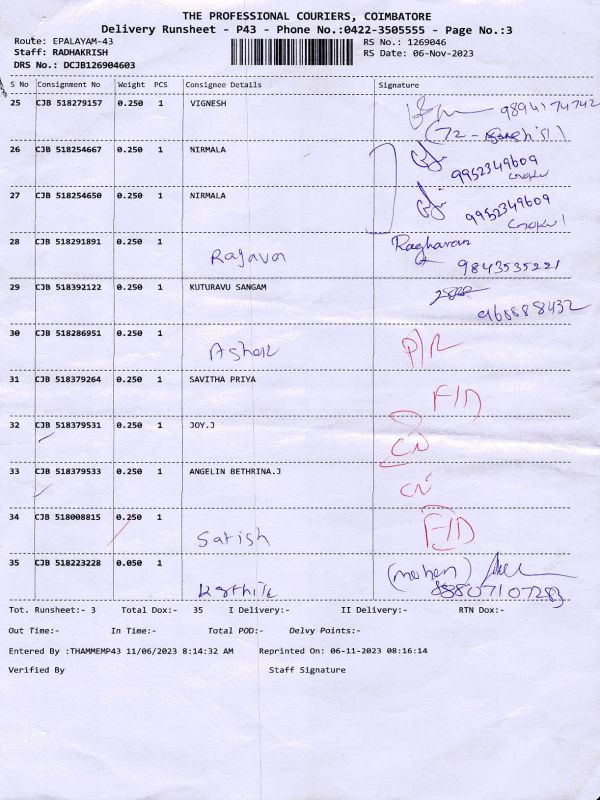 THE PROFESSIONAL COURIERS, COIMBATORE
Delivery Runsheet - P43 - Phone No.:0422-3505555 - Page No.:3
Route: EPALAYAM-43 RS No.: 1269046
Staff: RADHAKRISH RS Date: 06-Nov-2023
DRS No.: DCJB126904603
S No Consignment No Weight PCS Consignee Details Signature
25 CJB 518279157 0.250 1 VIGNESH 9894174742
(72 -
26 CJB 518254667 0.250 1 NIRMALA
9952349609
Gokul
27 CJB 518254650 0.250 1 NIRMALA
9952349609
Gokul
28 CJB 518291891 0.250 1 Ragavan Raghavan
9843535221
29 CJB 518392122 0.250 1 KUTURAVU SANGAM
30 CJB 518286951 0.250 1 Ashok P/R
31 CJB 518379264 0.250 1 SAVITHA PRIYA F/D
32 CJB 518379531 0.250 1 JOY.J CN
33 CJB 518379533 0.250 1 ANGELIN BETHRINA.J CN
34 CJB 518008815 0.250 1 Satish F/D
35 CJB 518223228 0.050 1 Karthik (mohan)
Tot. Runsheet:- 3 Total Dox:- 35 I Delivery:- II Delivery:- RTN Dox:-
Out Time:- In Time:- Total POD:- Delvy Points:-
Entered By :THAMMEMP43 11/06/2023 8:14:32 AM Reprinted On: 06-11-2023 08:16:14
Verified By Staff Signature